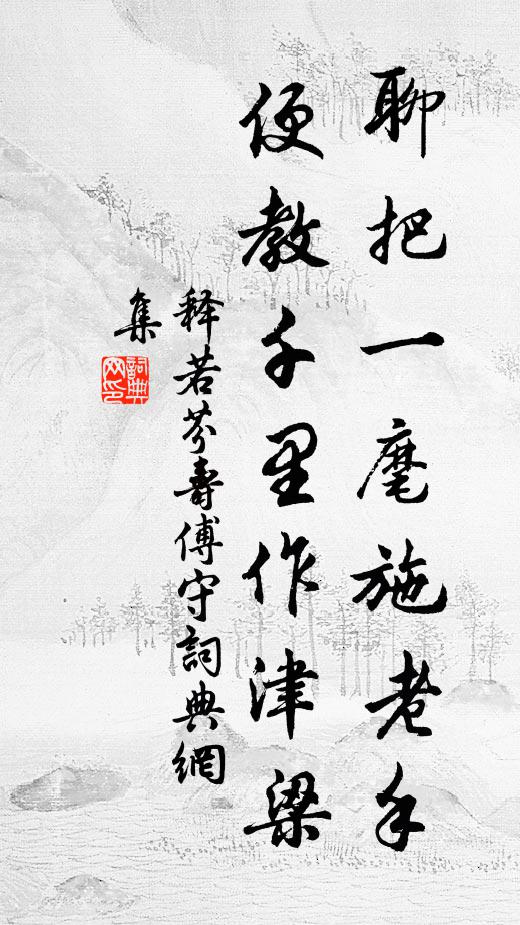 聊把一麾施老手
便教千里作津梁
释若芬壽傅守詞典網
集
詞典网印